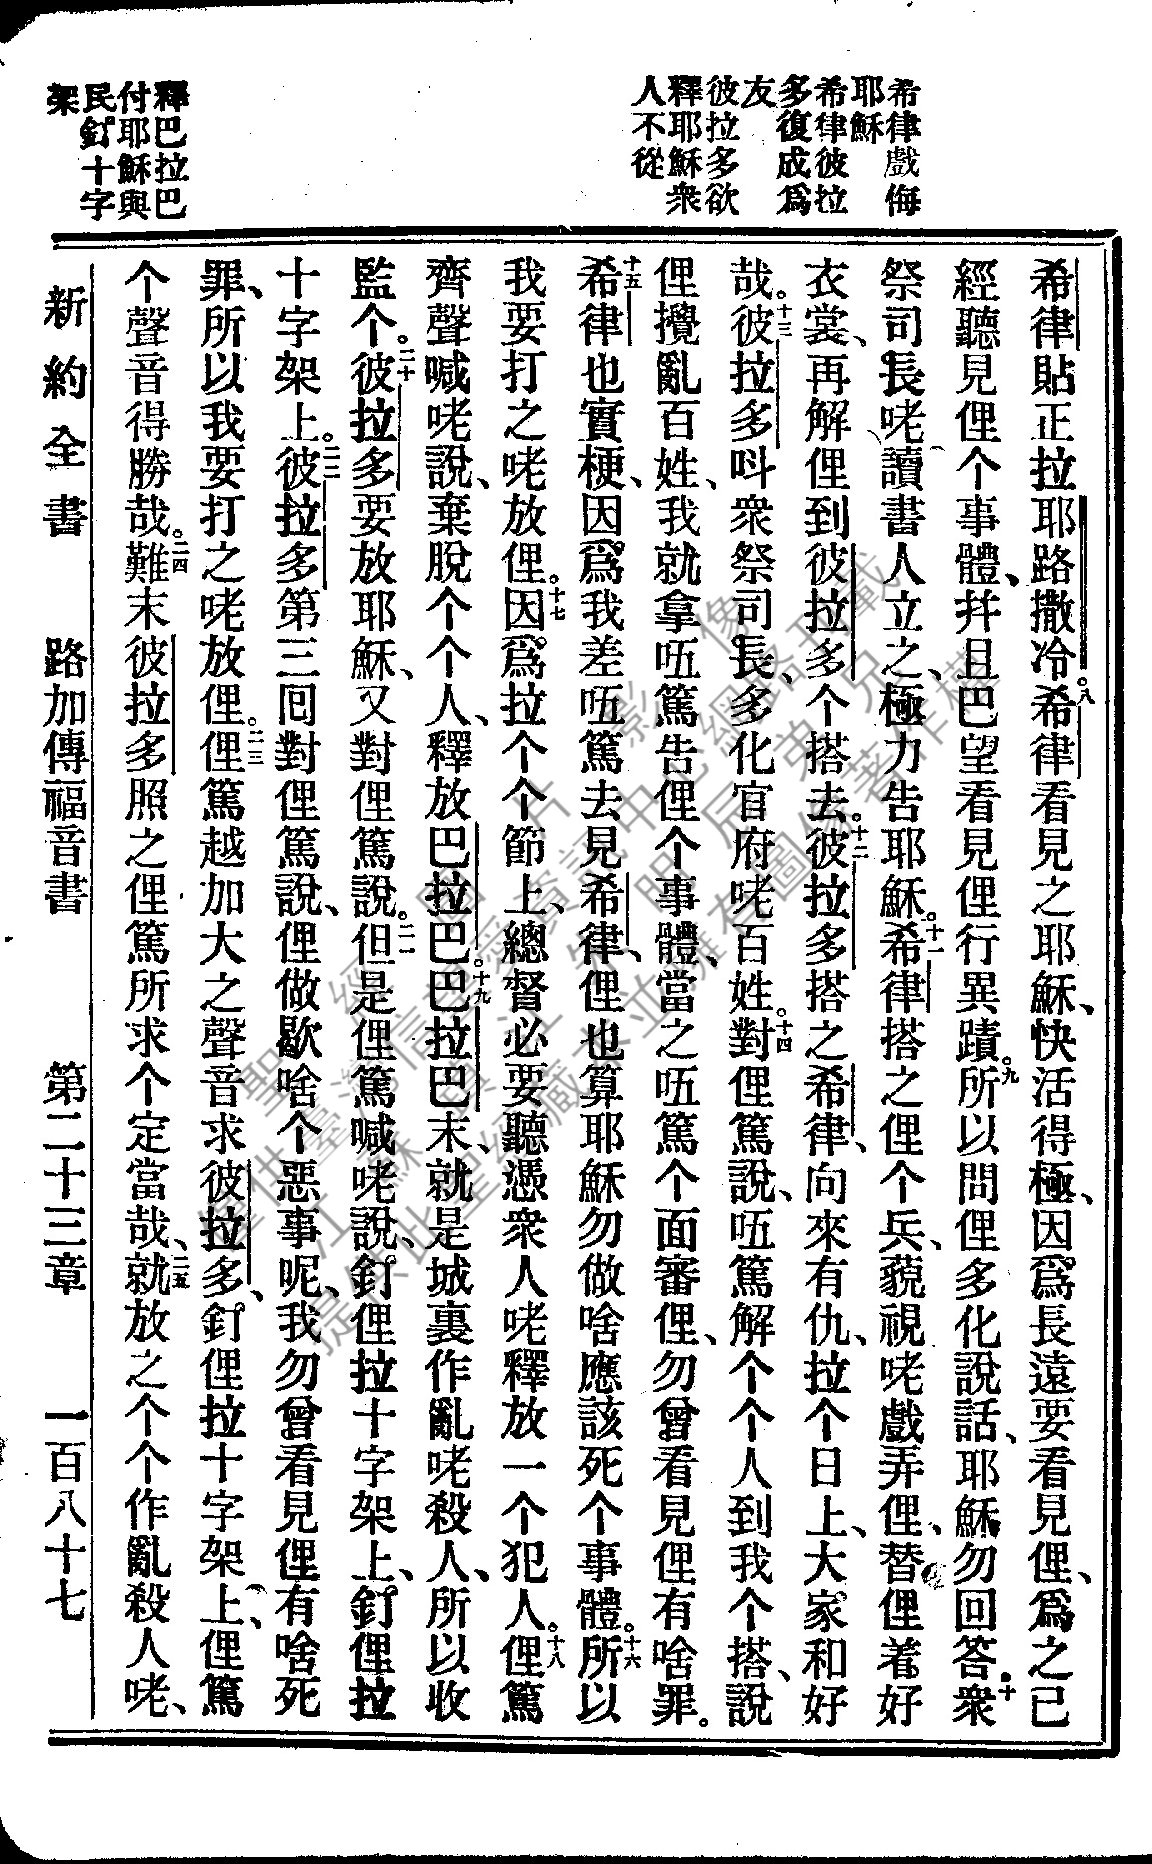 希律戲侮
耶穌
希律彼拉
多復成爲
友
彼拉多欲
釋耶穌衆
人不從
釋巴拉巴
付耶穌與
民釘十字
架
希律貼正拉耶路撒冷。八希律看見之耶穌、快活得極、因爲長遠要看見俚、爲之已
經聽見俚个事體、幷且巴望看見俚行異蹟。九所以問俚多化說話、耶穌勿回答。十衆
祭司長咾讀書人立之、極力告耶穌。十一希律搭之俚个兵、藐視咾戲弄俚、替俚着好
衣裳、再解俚到彼拉多个搭去。十二彼拉多搭之希律、向來有仇、拉个日上、大家和好
哉。十三彼拉多呌衆祭司長、多化官府咾百姓。十四對俚篤說、㑚篤解个个人到我个搭、說
俚攪亂百姓、我就拿㑚篤告俚个事體、當之㑚篤个面審俚、勿曾看見俚有啥罪。
十五希律也實梗、因爲我差㑚篤去見希律、俚也算耶穌勿做啥應該死个事體。十六所以
我要打之咾放俚。十七因爲拉个个節上、總督必要聽憑衆人咾釋放一个犯人。十八俚篤
齊聲喊咾說、棄脫个个人、釋放巴拉巴。十九巴拉巴末、就是城裏作亂咾殺人、所以收
監个。二十彼拉多要放耶穌、又對俚篤說。二一但是俚篤喊咾說、釘俚拉十字架上、釘俚拉
十字架上。二二彼拉多第三囘對俚篤說、俚做歇啥个惡事呢、我勿曾看見俚有啥死
罪、所以我要打之咾放俚。二三俚篤越加大之聲音求彼拉多、釘俚拉十字架上、俚篤
个聲音得勝哉。二四難末彼拉多照之俚篤所求个定當哉、二五就放之个个作亂殺人咾、
新約全書 路加傳福音書 第二十三章 一百八十七